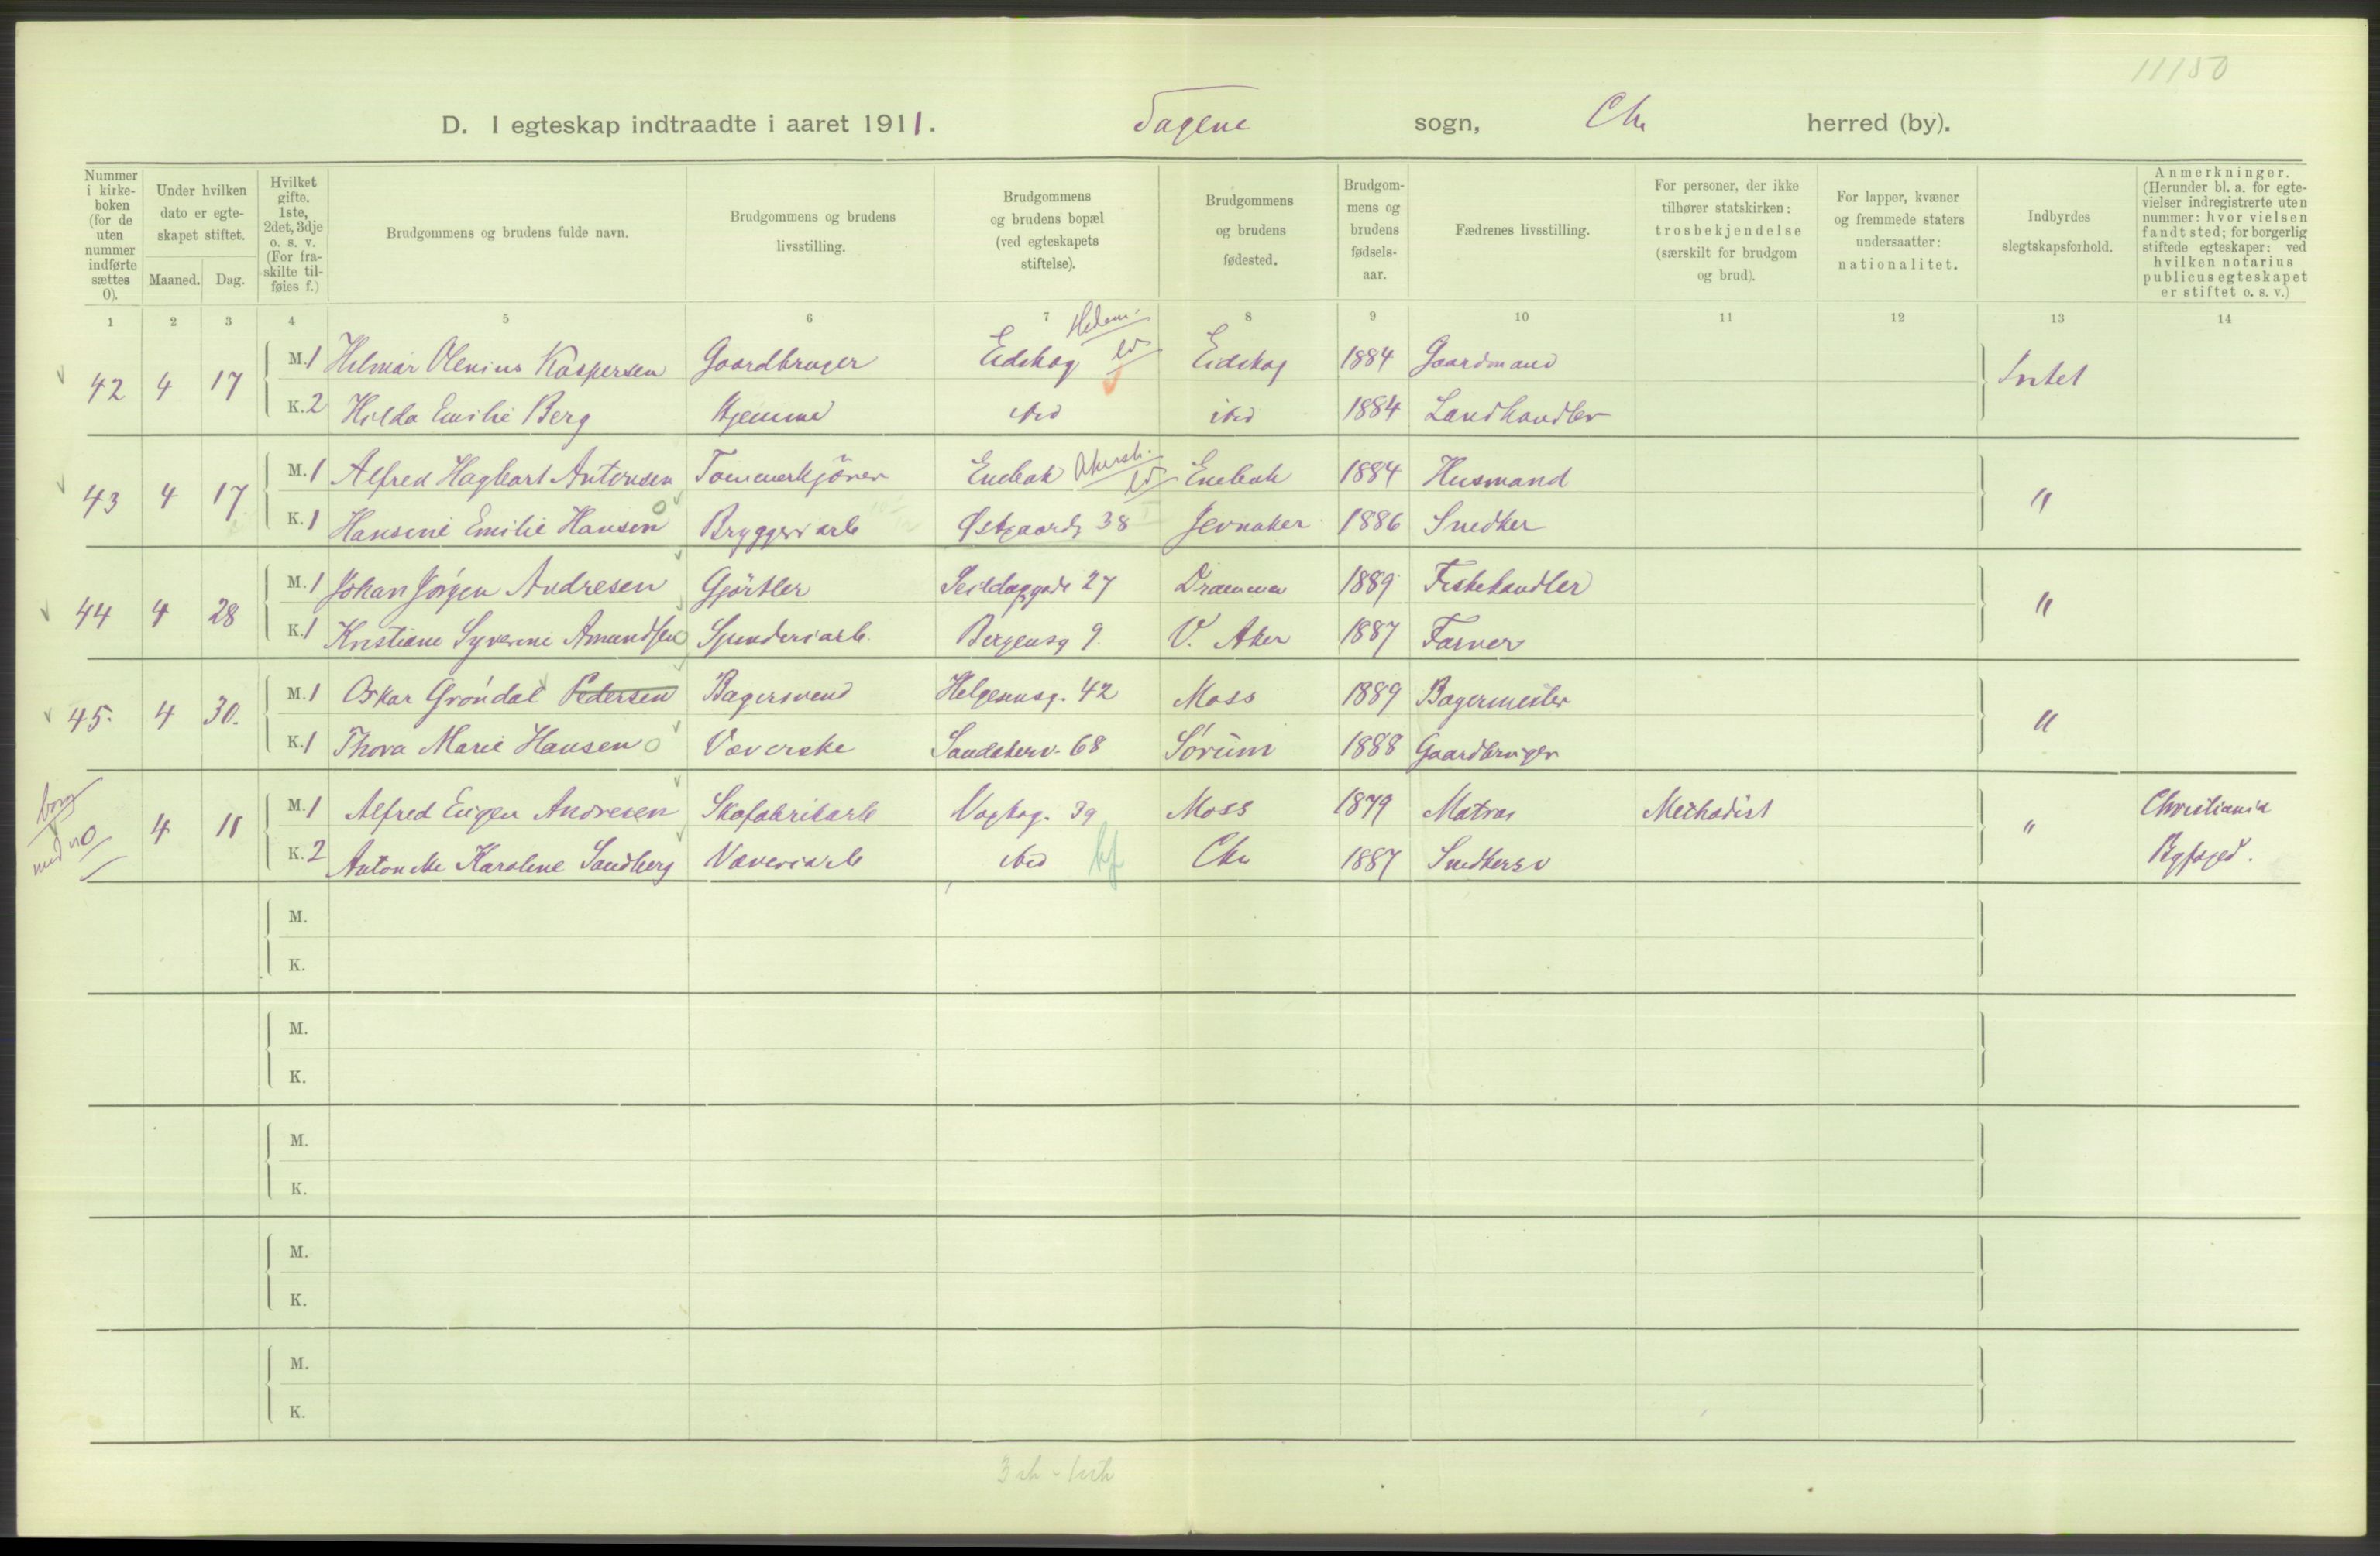 11150
D. I egteskap indtraadte i aaret 1911. Sagene sogn, Chr herred (by).
Nummer i kirke- boken (for de uten nummer indførte sættes 0).
Under hvilken dato er egte- skapet stiftet.
Maaned. Dag.
Hvilket gifte. 1ste, 2det, 3dje o. s. v. (For fra- skilte til- føies f.)
Brudgommens og brudens fulde navn.
Brudgommens og brudens livsstilling.
Brudgommens og brudens bopæl (ved egteskapets stiftelse).
Brudgommens og brudens fødested.
Brudgom- mens og brudens fødsels- aar.
Fædrenes livsstilling.
For personer, der ikke tilhører statskirken: trosbekjendelse (særskilt for brudgom og brud).
For lapper, kvæner og fremmede staters undersaatter: nationalitet.
Indbyrdes slegtskapsforhold.
Anmerkninger. (Herunder bl. a. for egte- vielser indregistrerte uten nummer: hvor vielsen fandt sted; for borgerlig stiftede egteskaper: ved hvilken notarius publicus egteskapet er stiftet o. s. v.)
1 2 3 4 5 6 7 8 9 10 11 12 13 14
Hedem.
42 4 17 M. 1 Hilmar Olenius Kaspersen Gaardbruger Eidskog Eidskog 1884 Gaardmand Intet
K. 2 Hilda Emilie Berg Hjemme ibid ibid 1884 Landhandler
43 4 17 M. 1 Alfred Hagbart Antonsen Tømmerkjører Enebak Akersh. Enebak 1884 Husmand "
K. 1 Hansine Emilie Hansen Bryggeriarb Østgaardg 38 Jevnaker 1886 Snedker
44 4 28 M. 1 Johan Jörgen Andresen Gjörtler Seildugsgade 27 Drammen 1889 Fiskehandler "
K. 1 Kristiane Syverine Amundsen Spinderiarb. Bergensg 9. V. Aker 1887 Farver
45. 4 30. M. 1 Oskar Gröndal Pedersen Bagersvend Helgesensg. 42 Moss 1889 Bagermester "
K. 1 Thora Marie Hansen Væverske Sandakerv. 68 Sörum 1888 Gaardbruger
borg med no 4 11 M. 1 Alfred Eugen Andresen Skofabrikarb Vogtsg. 39 Moss 1879 Matros Methodist " Christiania
K. 2 Antonette Karoline Sandberg Væveriarb ibid bf Chr 1887 Snedkersv Byfoged.
M.
K.
M.
K.
M.
K.
M.
K.
M.
K.